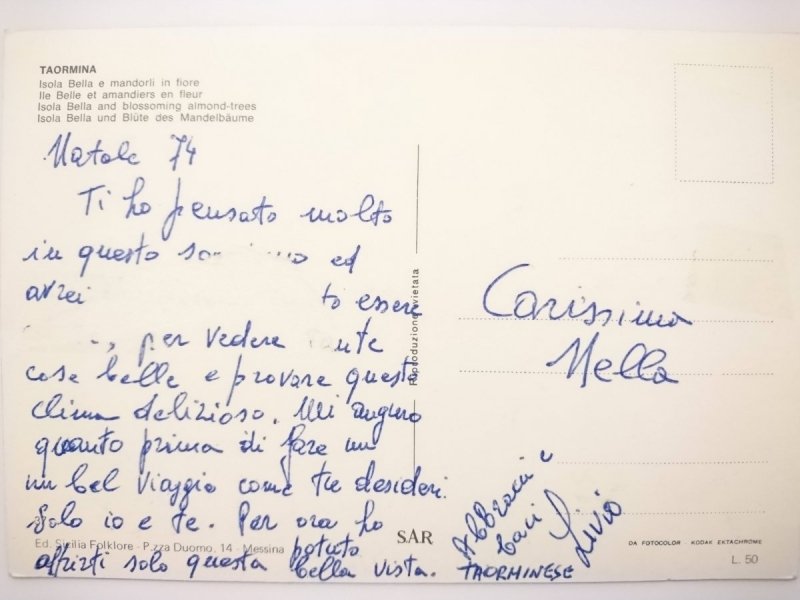 TAORMINA
Isola Bella e mandorli in fiore
Ile Belle et amandiers en fleur
Isola Bella and blossoming almond-trees
Isola Bella und Blüte des Mandelbäume
Natale 74
Ti ho pensato molto
in questo ed
avrei to essere
per vedere
cose belle e provare questo
clima delizioso. Mi auguro
quanto prima di fare un
un bel viaggio come tu desideri.
Solo io e te. Per ora ho
potuto
offrirti solo questa bella vista.
Ed. Sicilia Folklore - P.zza Duomo, 14 - Messina
SAR
Riproduzione vietata
Carissima
Nella
Abbracci e
baci
Livio
TAORMINESE
DA FOTOCOLOR - KODAK EKTACHROME
L. 50